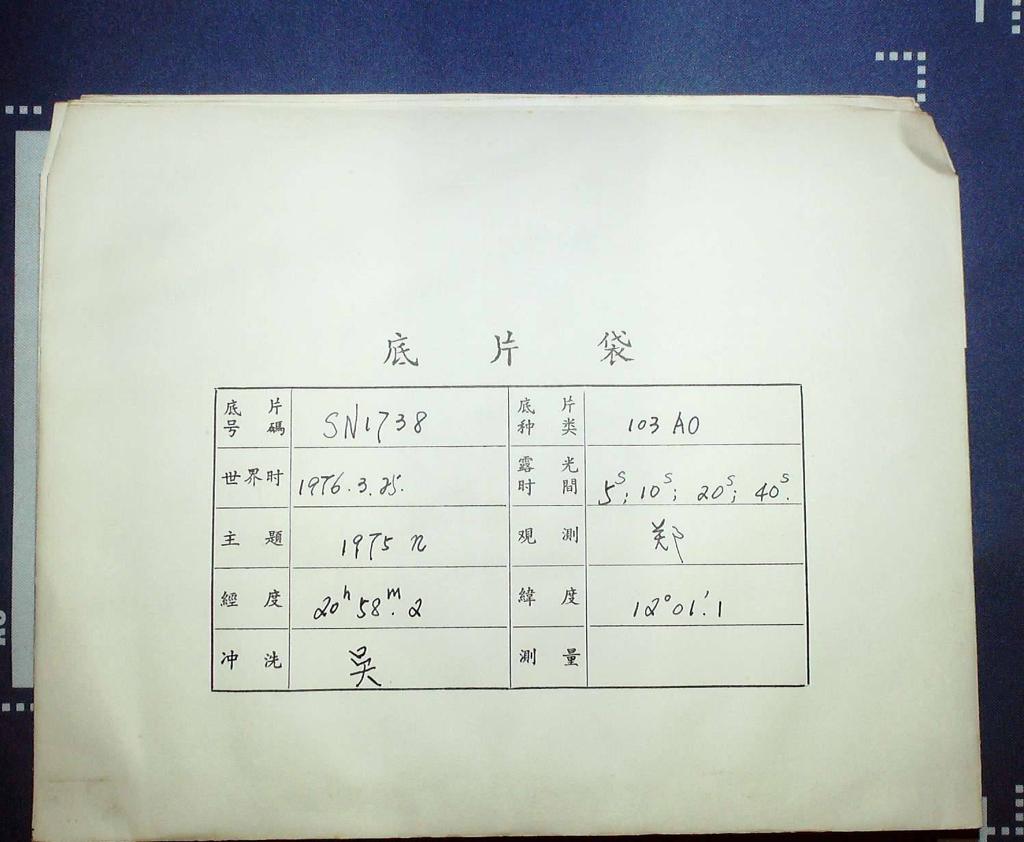 底 片 袋
底片号碼 SN1738 底片种类 103 AO
世界时 1976.3.25. 露光时間 5ˢ; 10ˢ; 20ˢ; 40ˢ.
主題 1975 n 观測 郑
經度 20ʰ58ᵐ.2 緯度 12°01′.1
冲洗 吴 測量